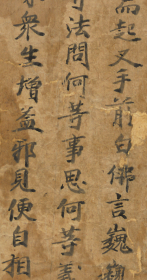 而起叉手前白佛言巍巍
可法問何等事思何等
衆生增益邪見便自相